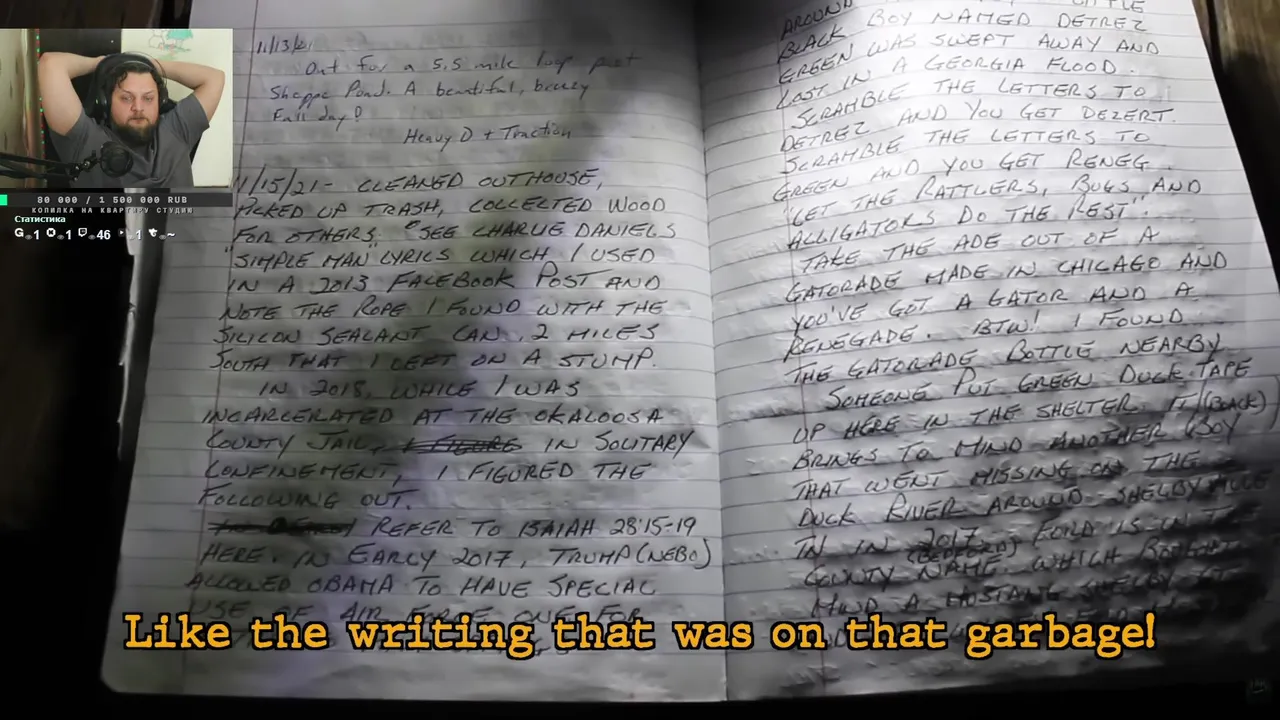 11/13/21
Out for a 5.5 mile loop past
Shappe Pond. A beautiful, breezy
Fall day!
Heavy D + Traction
11/15/21- CLEANED OUTHOUSE,
PICKED UP TRASH, COLLECTED WOOD
FOR OTHERS. SEE CHARLIE DANIELS
"SIMPLE MAN" LYRICS WHICH I USED
IN A 2013 FACEBOOK POST AND
NOTE THE ROPE I FOUND WITH THE
SILICON SEALANT CAN, 2 MILES
SOUTH THAT I LEFT ON A STUMP.
IN 2018, WHILE I WAS
INCARCERATED AT THE OKALOOSA
COUNTY JAIL, I FIGURE IN SOLITARY
CONFINEMENT, I FIGURED THE
FOLLOWING OUT.
REFER TO ISAIAH 28:15-19
HERE. IN EARLY 2017, TRUMP (NEBO)
ALLOWED OBAMA TO HAVE SPECIAL
USE OF AIR FORCE ONE FOR
AROUND
BLACK BOY NAMED DETREZ
GREEN WAS SWEPT AWAY AND
LOST IN A GEORGIA FLOOD.
SCRAMBLE THE LETTERS TO
DETREZ AND YOU GET DEZERT.
SCRAMBLE THE LETTERS TO
GREEN AND YOU GET RENEG
"LET THE RATTLERS, BUGS AND
ALLIGATORS DO THE REST".
TAKE THE ADE OUT OF A
GATORADE MADE IN CHICAGO AND
YOU'VE GOT A GATOR AND A
RENEGADE. BTW! I FOUND
THE GATORADE BOTTLE NEARBY
SOMEONE PUT GREEN DUCK TAPE
UP HERE IN THE SHELTER. IT (BLACK)
BRINGS TO MIND ANOTHER (BOY)
THAT WENT MISSING ON THE
DUCK RIVER AROUND SHELBYVILLE
TN IN 2017. FORD IS IN THE
(BEDFORD)
COUNTY NAME WHICH BROUGHT
MIND A MUSTANG SHELBY GT
30 000 / 1 500 000 RUB
КОПИЛКА НА КВАРТИРУ СТУДИЮ
Статистика
1 1 46 1 ~
Like the writing that was on that garbage!